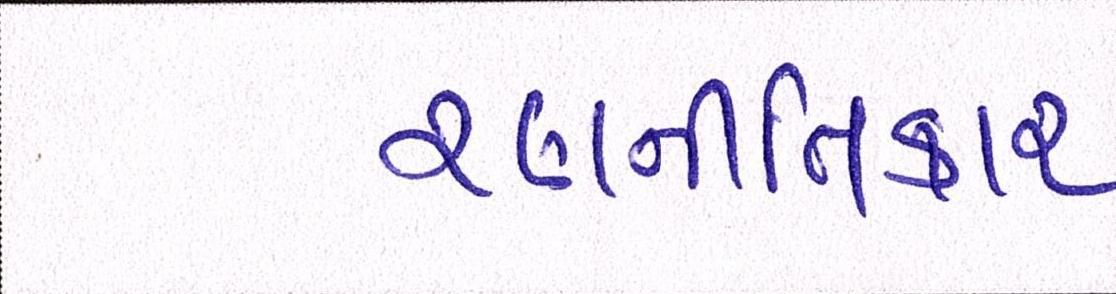 રણનીતિકાર